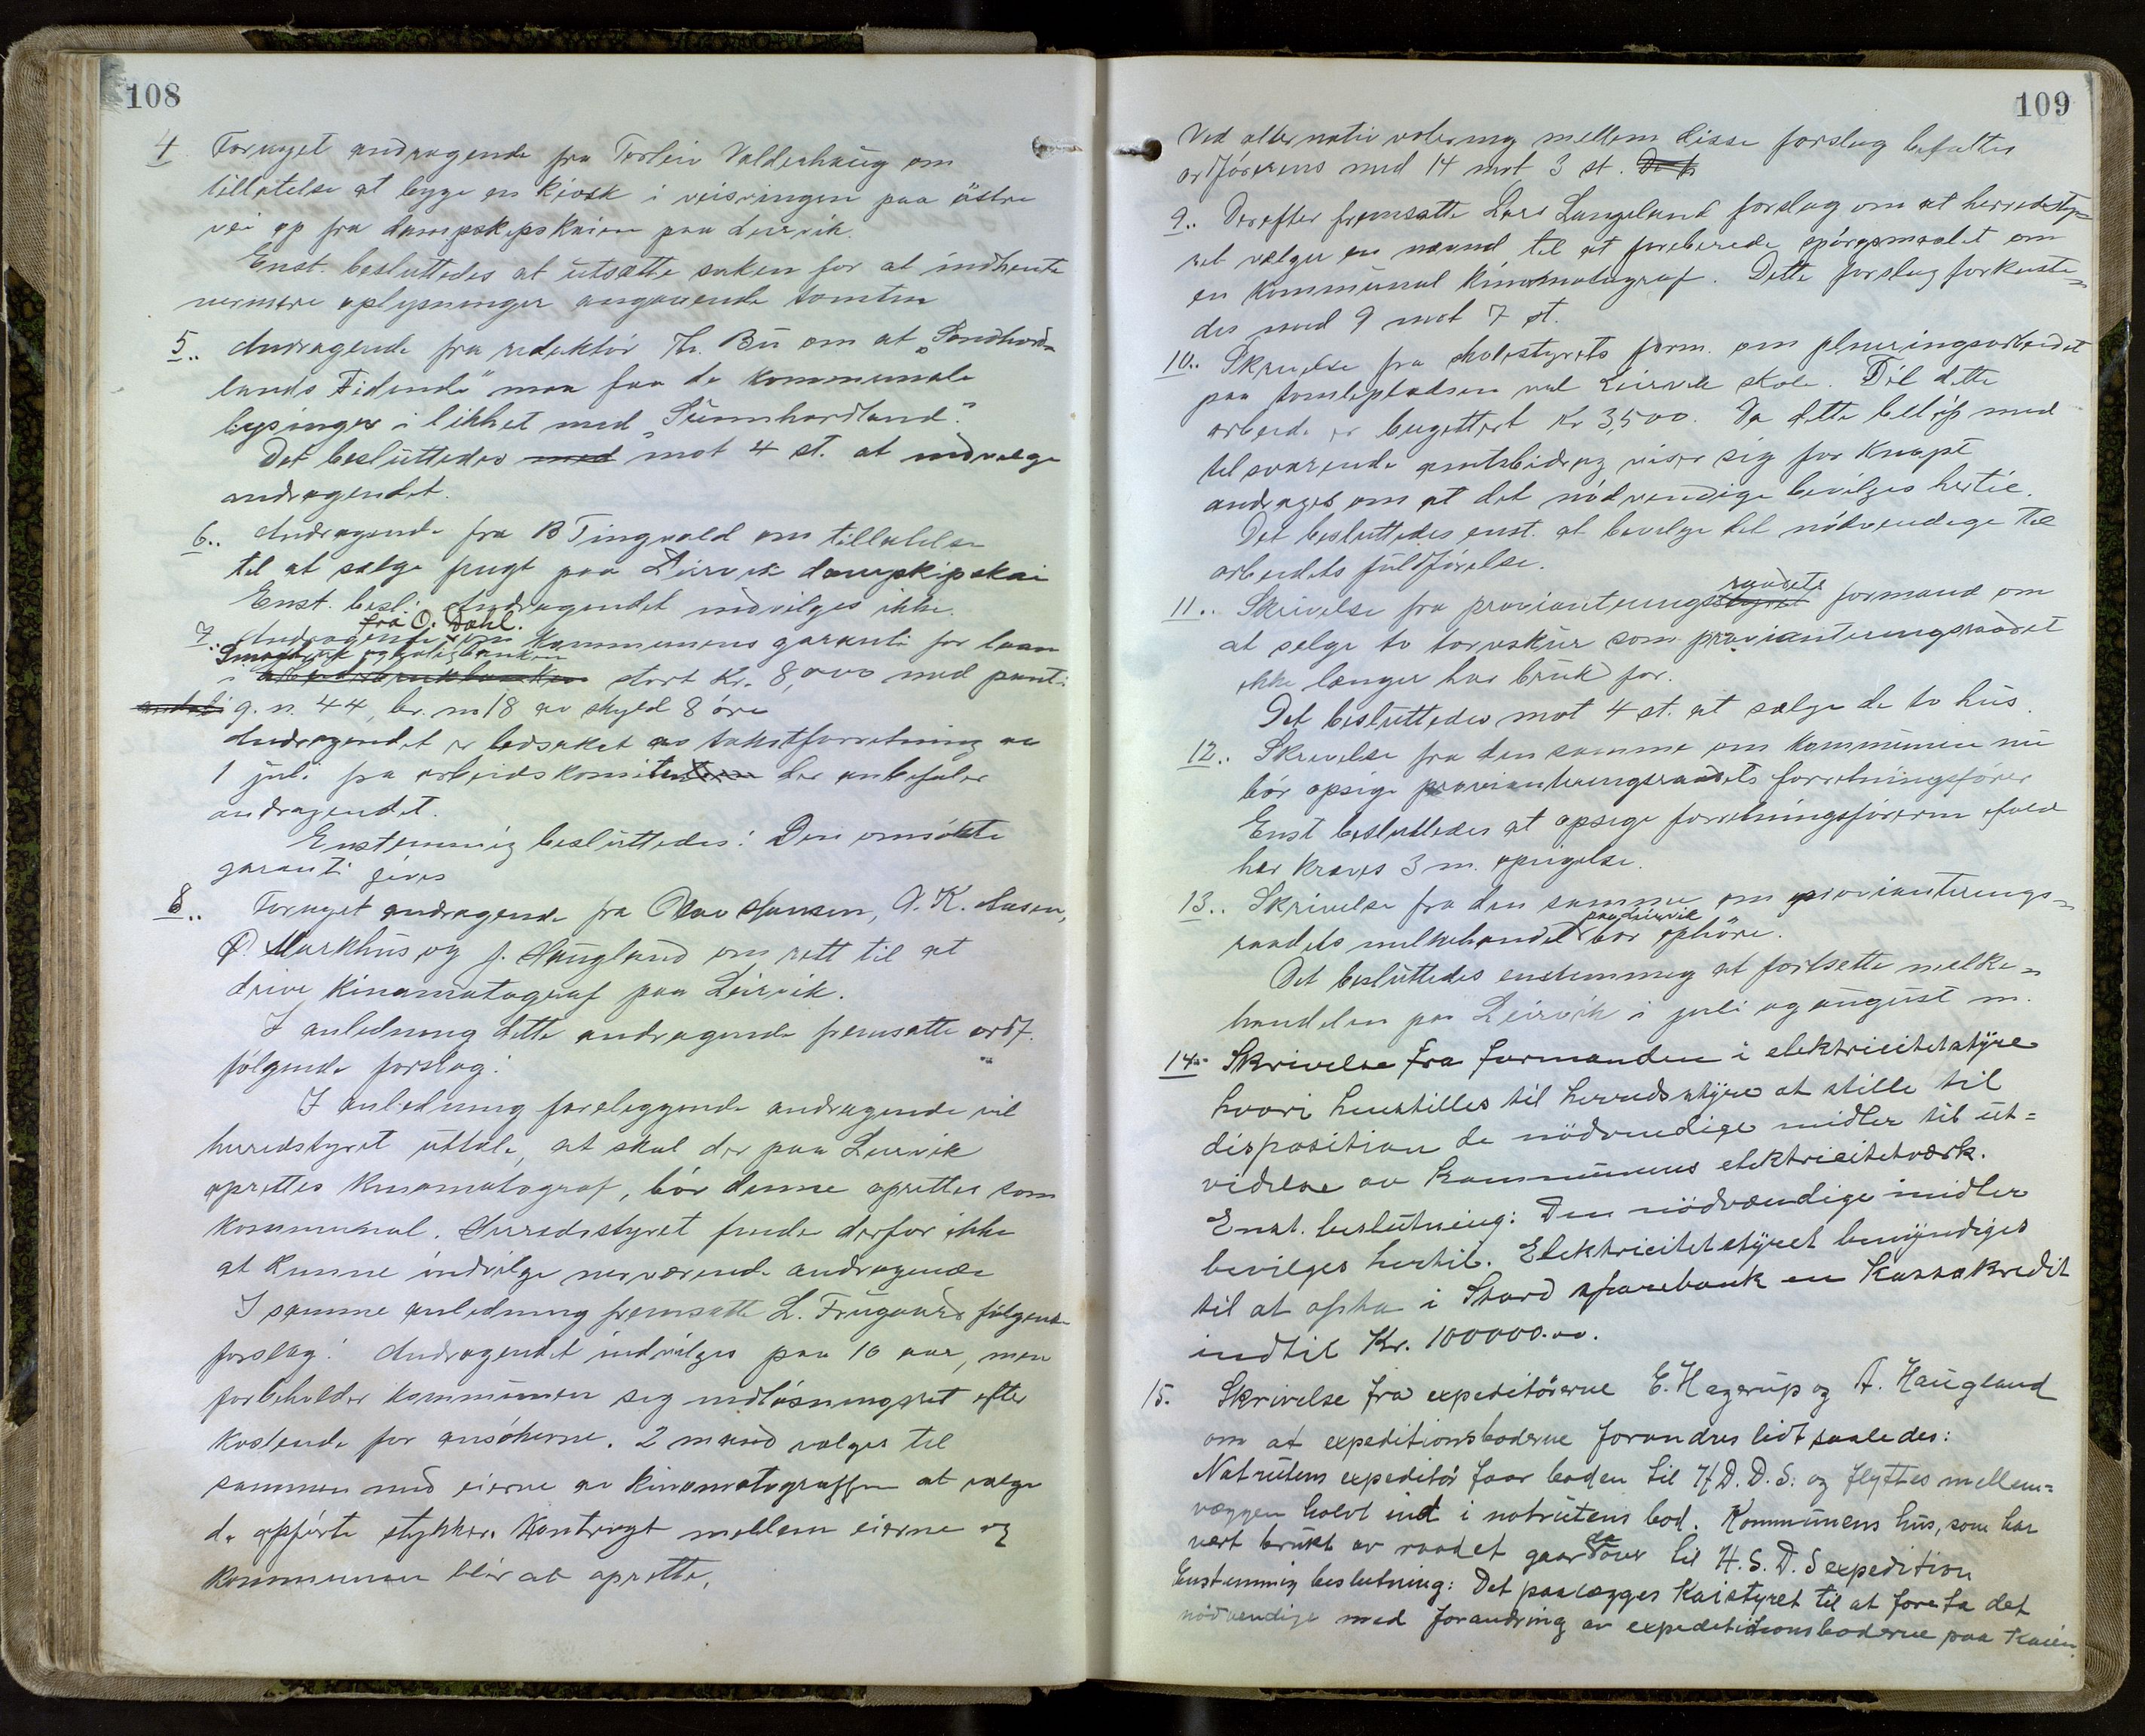 108
4 Foraget andragende fra Torleiv Valderhaug om
tillatelse at bygge en kiosk i veisvingen paa östre
vei op fra dampskipskaien paa Leirvik.
Enst. besluttedes at utsætte saken for at indhente
nermere oplysninger angaaende tomten
5.. Andragende fra redaktör Th. Bu om at „Söndhord-
lands Tidende" maa faa de kommunale
lysinger i likhet med „Sunnhordland".
Det besluttedes med mot 4 st. at indvilge
andragendet.
6.. Andragende fra B Tingvold om tillatelse
til at sælge frugt paa Leirvik dampskipskai
Enst. besl.: Andragendet indvilges ikke.
fra O. Dahl.
7.. Andragende om kommunens garanti for laan
Smaabruk og boligbanken
i stort Kr. 8,000 med pant i
g.n. 44, br. no 18 av skyld 8 öre
Andragendet er ledsaket av takstforretning av
1 juli fra arbeidskomiteen der anbefaler
andragendet.
Enstemmig besluttedes: Den omsökte
garanti gives
8.. Foraget andragende fra Olav Hansen, A. K. Aasen,
O. Markhus og J. Haugland om rett til at
drive kinamatograf paa Leirvik.
I anledning dette andragende fremsatte ordf.
fölgende forslag:
I anledning foreleggende andragende vil
herredstyret uttale, at skal der paa Leirvik
oprettes kinamatograf, bör denne oprettes som
kommunal. Herredsstyret finder derfor ikke
at kunne indvilge nærværende andragende
I samme anledning fremsatte L. Frugaard fölgende
forslag: Andragendet indvilges paa 10 aar, men
forbeholder kommunen sig indlösningsret efter
kostende for ansökerne. 2 mand vælges til
sammen med eierne av kinamatografen at vælge
de opförte stykker. Kontragt mellem eierne og
kommunen blir at oprette.
109
Ved alternativ votering mellem disse forslag befattes
ordförerens med 14 mot 3 st.
9.. Derefter fremsatte Lars Langeland forslag om at herredsty=
ret vælger en nævnd til at foreberede spörgsmaalet om
en kommunal kinamatograf. Dette forslag forkaste=
des med 9 mot 7 st.
10.. Skrivelse fra skolestyrets form. om planeringsarbeidet
paa tomtepladsen ved Leirvik skole. Til dette
arbeide er bugettert Kr 3,500. Da dette belöp med
tilsvarende amtsbidrag viser sig for knapt
andrages om at det nödvendige bevilges hertil.
Det besluttedes enst. at bevilge det nödvendige til
arbeidets fuldförelse.
raadets
11.. Skrivelse fra provianteringsstyret formand om
at selge to torvskur som provianteringsraadet
ikke længer har bruk for.
Det besluttedes mot 4 st. at sælge de to hus.
12.. Skrivelse fra den samme om kommunen nu
bör opsige provianteringsraadets forretningsförer
Enst besluttedes at opsige forretningsföreren ifald
her kræves 3 m. opsigelse.
13.. Skrivelse fra den samme om provianterings=
paa Leirvik
raadets melkehandel bör ophöre.
Det besluttedes enstemmig at fortsette melke=
handelen paa Leirvik i juli og august m.
14.. Skrivelse fra formanden i elektricitetstyre
hvori henstilles til herredsstyre at stille til
disposition de nödvendige midler til ut=
videlse av kommunens elektricitetværk.
Enst. beslutning: Den nödvændige midler
bevilges hertil. Elektricitetstyret bemyndiges
til at opta i Stord sparebank en Kassakredit
indtil Kr. 100000.00.
15. Skrivelse fra expeditörerne E. Hagerup og A. Haugland
om at expeditionsboderne forandres lidt saaledes:
Natrutens expeditör faar boden til H.D.D.S. og flyttes mellem=
væggen halvt ind i natrutens bod. Kommunens hus, som har
vært brukt av raadet gaar da over til H.S.D.S expedition
Enstemmig beslutning: Det paalægges Kaistyret til at foreta det
nödvendige med forandring av expeditionsboderne paa Kaien.